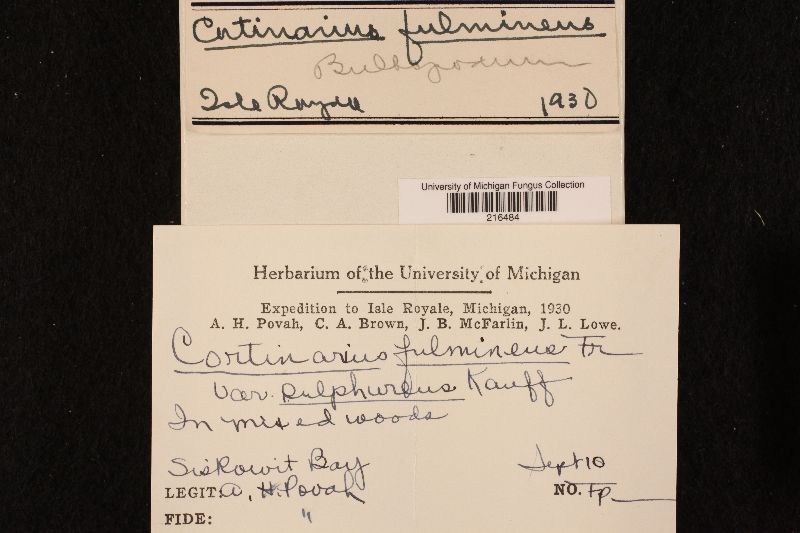 Cortinarius fulmineus
Bulbopodium
Isle Royale 1930
University of Michigan Fungus Collection
216484
Herbarium of the University of Michigan
Expedition to Isle Royale, Michigan, 1930
A. H. Povah, C. A. Brown, J. B. McFarlin, J. L. Lowe.
Cortinarius fulmineus Fr
var. sulphureus Kauff
In mixed woods
Siskowit Bay Sept 10
LEGIT: A. H. Povah NO. Fp
FIDE: "